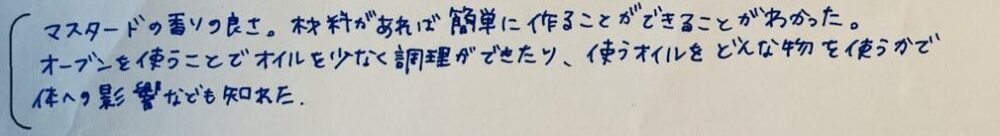 マスタードの香りの良さ。材料があれば簡単に作ることができることがわかった。
オーブンを使うことでオイルを少なく調理ができたり、使うオイルをどんな物を使うかで
体への影響なども知れた.